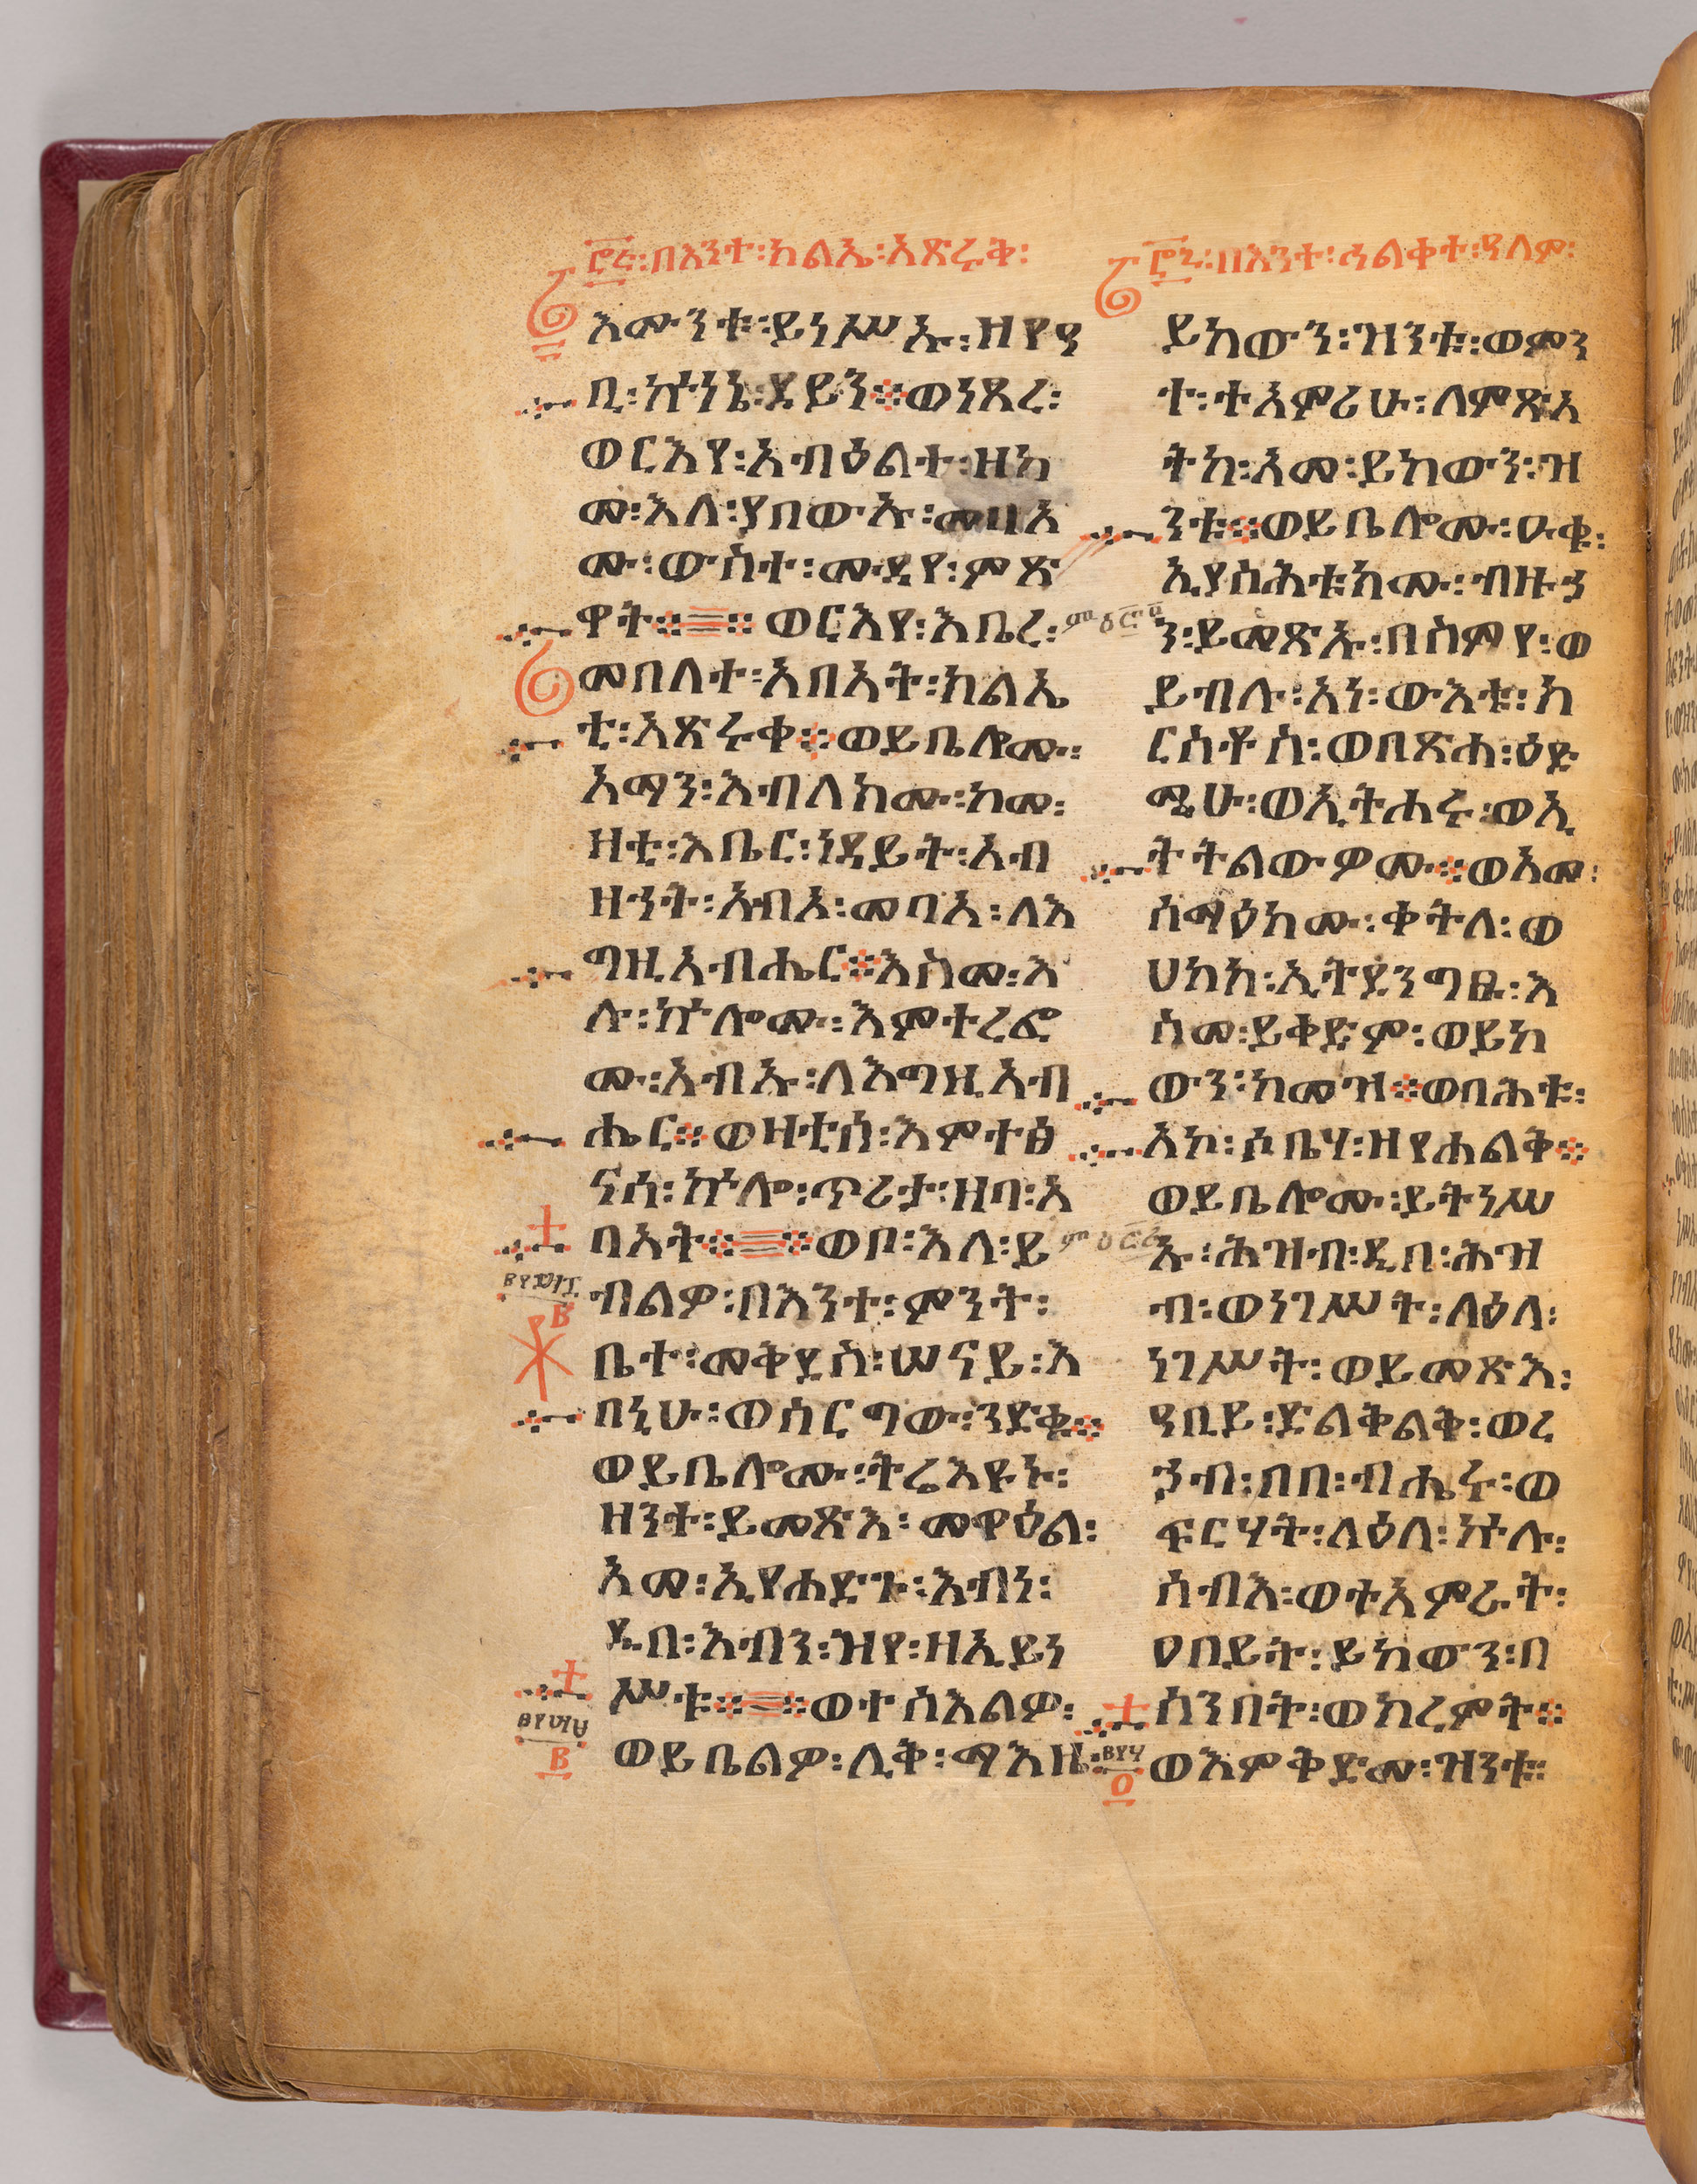 ፸፭፡በእንተ፡ክልኤ፡አጽሩቅ፡
እሙንቱ፡ይነሥኡ፡ዘየዓ
ቢ፡ኵነኔ፡ደይን፨ወነጸረ፡
ወርእየ፡አብዕልተ፡ዘከ
መ፡እለ፡ያበውኡ፡መባአ
ሙ፡ውስተ፡ሙዳየ፡ምጽ
ዋት፨፨ወርእየ፡እቤረ፡
መበለተ፡አበአት፡ክልኤ
ቲ፡አጽሩቀ፨ወይቤሎሙ፡
አማን፡እብለክሙ፡ከመ፡
ዛቲ፡እቤር፡ነዳይት፡አብ
ዘንት፡አብአ፡መባአ፡ለእ
ግዚአብሔር፨እስመ፡እ
ሉ፡ኵሎሙ፡እምተረፎ
ሙ፡አብኡ፡ለእግዚአብ
ሔር፨ወዛቲሰ፡እምተፅ
ናሳ፡ኵሎ፡ጥሪታ፡ዘባ፡አ
ባአት፨፨ወቦ፡እለ፡ይ
ብልዎ፡በእንተ፡ምንት፡
ቤተ፡መቅደስ፡ሠናይ፡እ
በኒሁ፡ወሰርግው፡ንድቁ፨
ወይቤሎሙ፡ትሬእዩኑ፡
ዘንተ፡ይመጽእ፡መዋዕል፡
አመ፡ኢየሐድጉ፡እብነ፡
ዲበ፡እብን፡ዝየ፡ዘኢይነ
ሥቱ፨፨ወተስእልዎ፡
ወይቤልዎ፡ሊቅ፡ማእዜ፡
፸፮፡በእንተ፡ኅልቀተ፡ዓለም፡
ይከውን፡ዝንቱ፡ወምን
ት፡ተአምሪሁ፡ለምጽአ
ትከ፡አመ፡ይከውን፡ዝ
ንቱ፨ወይቤሎሙ፡ዑቁ፡
ኢያስሕቱክሙ፡ብዙኃ
ን፡ይመጽኡ፡በስምየ፡ወ
ይብሉ፡አነ፡ውእቱ፡ክ
ርስቶስ፡ወበጽሐ፡ዕድ
ሜሁ፡ወኢትሐሩ፡ወኢ
ትትልውዎሙ፨ወአመ፡
ሰማዕክሙ፡ቀትለ፡ወ
ሀከከ፡ኢትደንግፁ፡እ
ስመ፡ይቀድም፡ወይከ
ውን፡ከመዝ፨ወባሕቱ፡
አኮ፡ሶቤሃ፡ዘየሐልቅ፨
ወይቤሎሙ፡ይትነሥ
ኡ፡ሕዝብ፡ዲበ፡ሕዝ
ብ፡ወነገሥት፡ላዕለ፡
ነገሥት፡ወይመጽእ፡
ዓቢይ፡ድልቅልቅ፡ወረ
ኃብ፡በበ፡ብሔሩ፡ወ
ፍርሃት፡ላዕለ፡ኵሉ፡
ሰብእ፡ወተአምራት፡
ዐበይት፡ይከውን፡በ
ሰንበት፡ወክረምት፨
ወእምቅድመ፡ዝንቱ፡